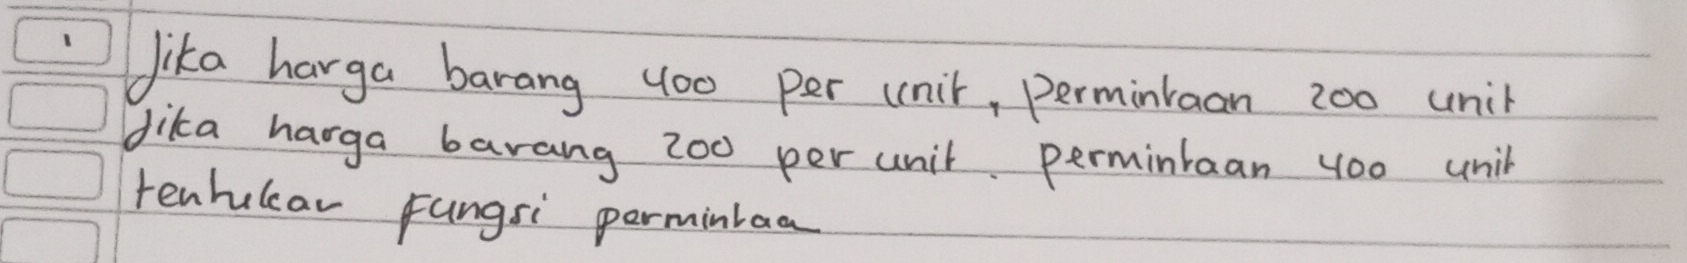 1 Jika harga barang 400 per unit, permintaan 200 unit
Jika harga barang 200 per unit. permintaan 400 unit
tentukan fungsi permintaa